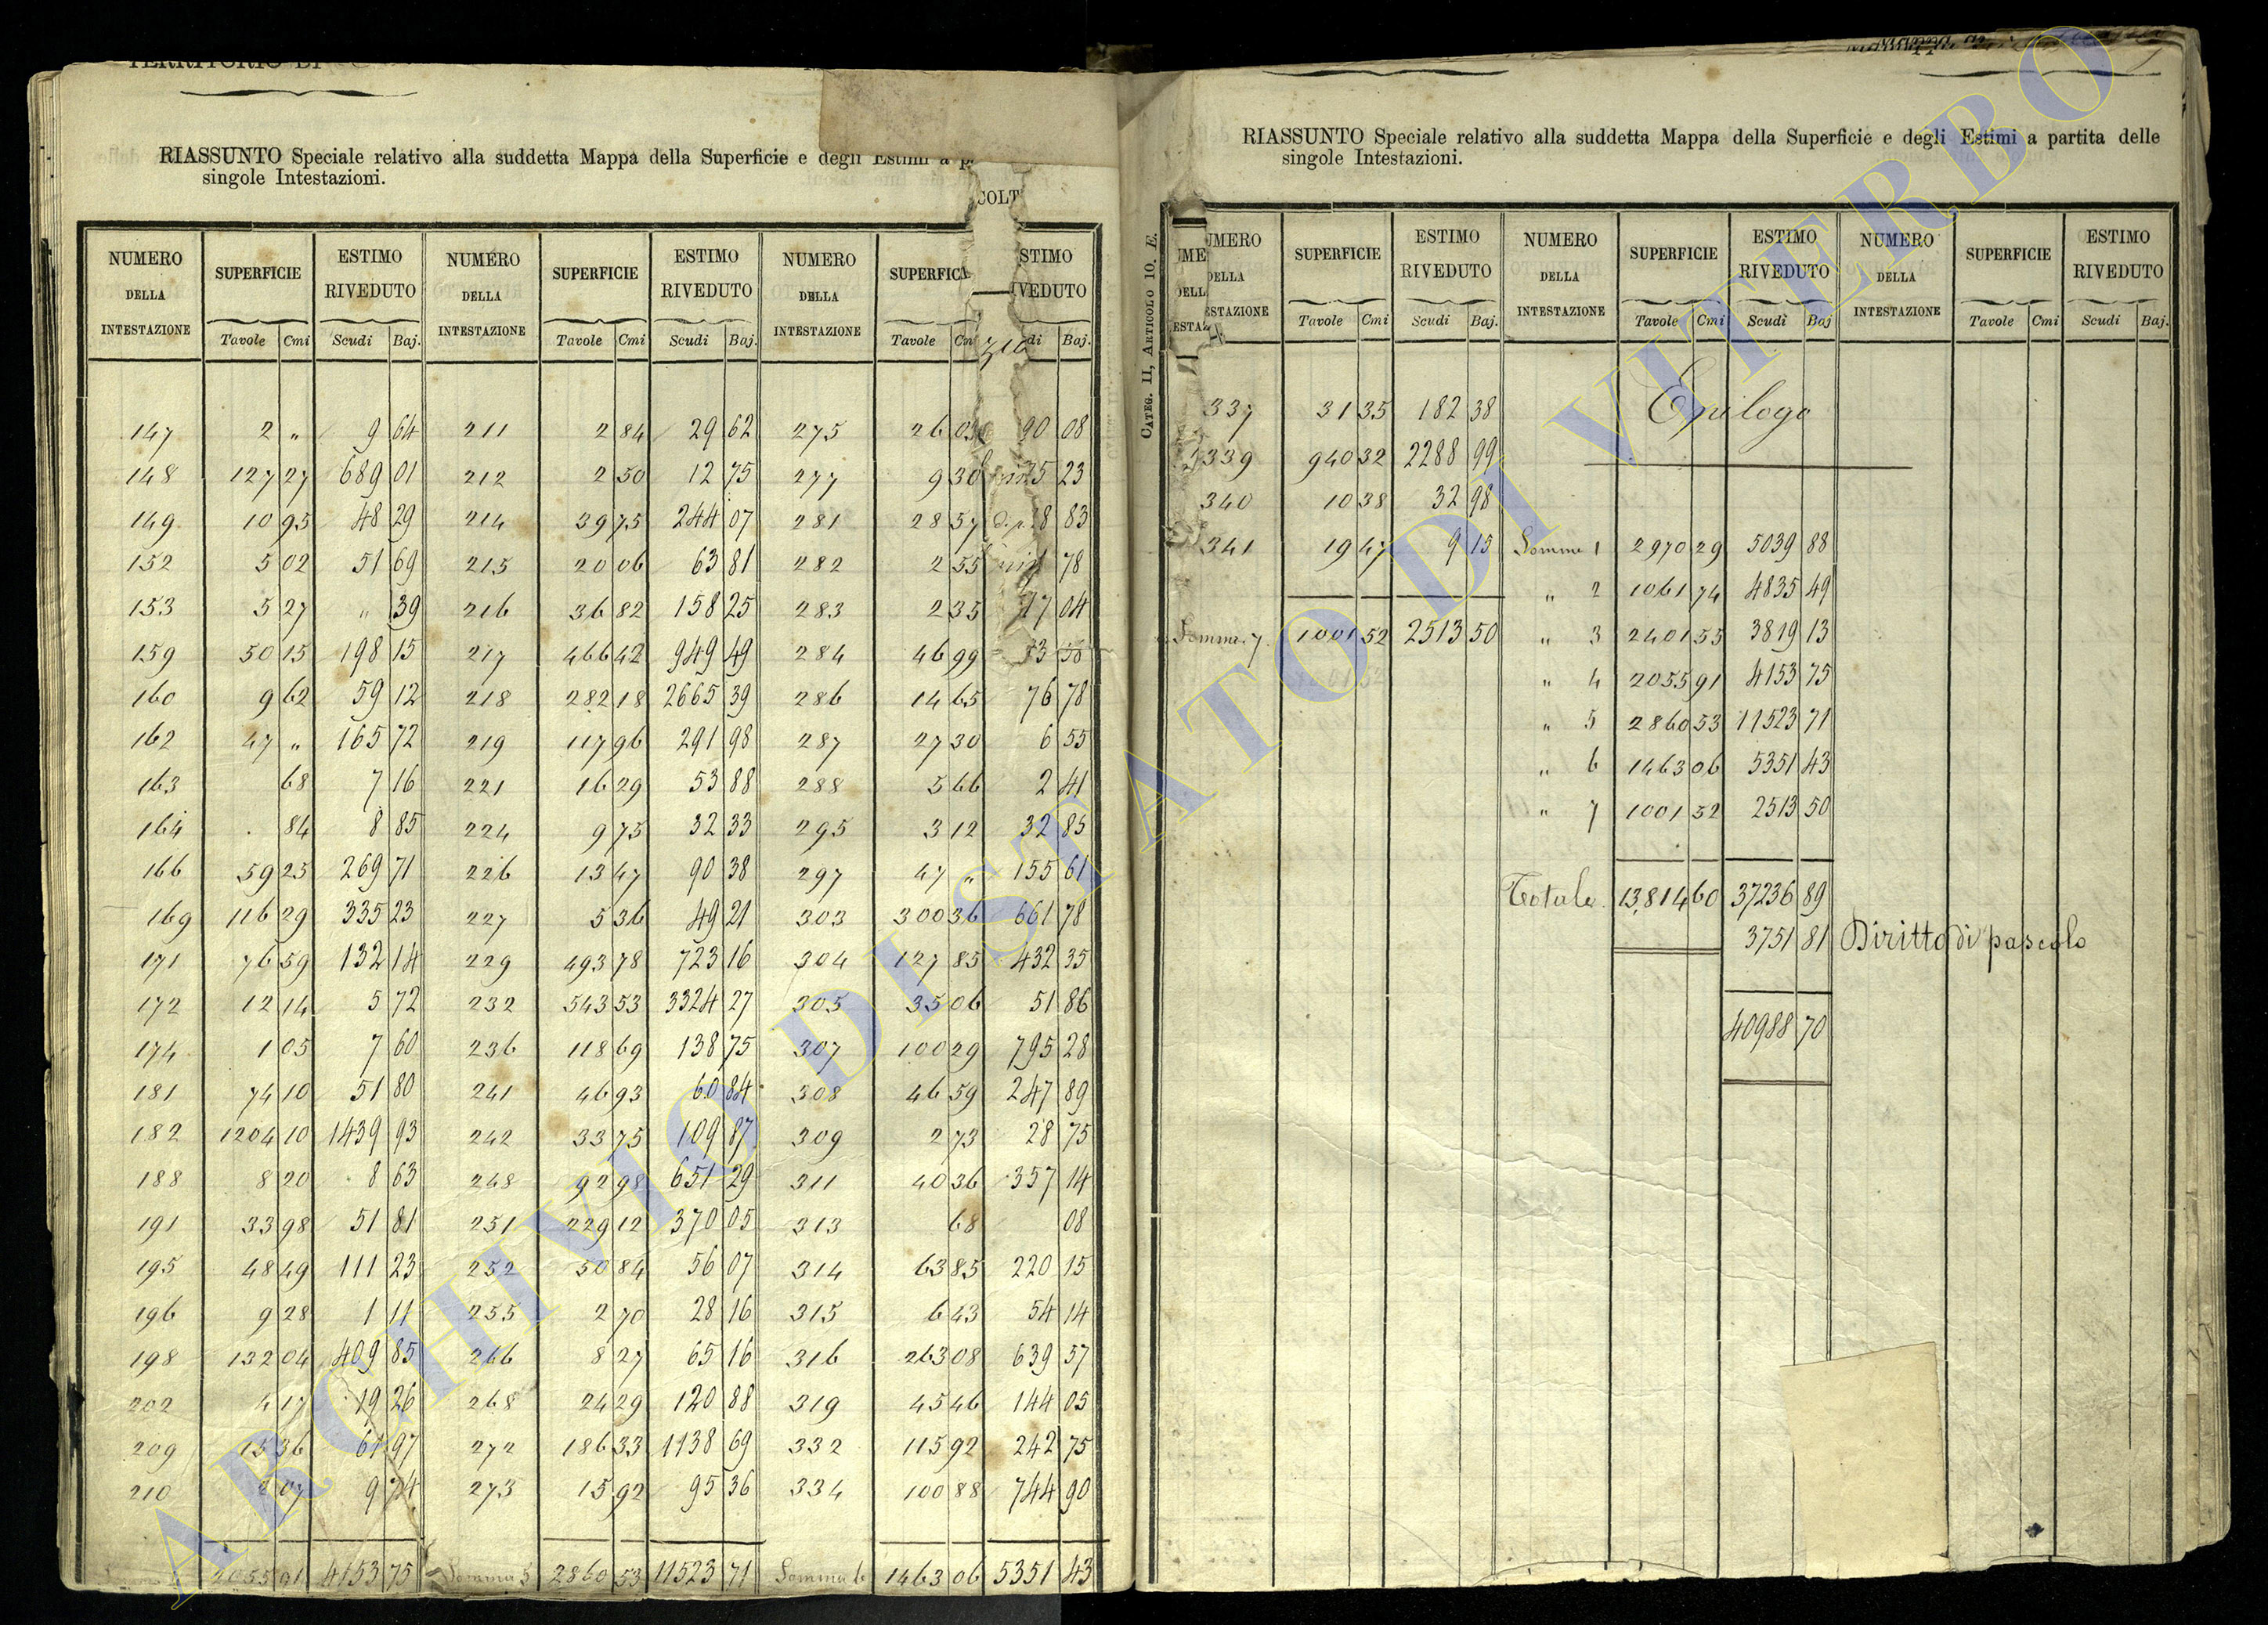 TERRITORIO DI
RIASSUNTO Speciale relativo alla suddetta Mappa della Superficie e degli Estimi a
singole Intestazioni.
COLT
NUMERO DELLA INTESTAZIONE SUPERFICIE ESTIMO RIVEDUTO NUMERO DELLA INTESTAZIONE SUPERFICIE ESTIMO RIVEDUTO NUMERO DELLA INTESTAZIONE SUPERFICI STIMO VEDUTO
Tavole Cmi Scudi Baj. Tavole Cmi Scudi Baj. Tavole Cm di Baj.
316
147 2 " 9 64 211 2 84 29 62 275 26 05 90 08
148 127 27 689 01 212 2 50 12 75 277 9 30 35 23
149 10 95 48 29 214 39 75 244 07 281 28 57 8 83
152 5 02 51 69 215 20 06 63 81 282 2 55 78
153 5 27 " 39 216 36 82 158 25 283 2 35 17 04
159 50 15 198 15 217 466 42 949 49 284 46 99 33
160 9 62 59 12 218 282 18 2665 39 286 14 65 76 78
162 47 " 165 72 219 117 96 291 98 287 27 30 6 55
163 68 7 16 221 16 29 53 88 288 5 66 2 41
164 84 8 85 224 9 75 32 33 295 3 12 32 85
166 59 25 269 71 226 13 47 90 38 297 47 " 155 61
169 116 29 335 23 227 5 36 49 21 303 300 36 661 78
171 76 59 132 14 229 493 78 723 16 304 127 85 432 35
172 12 14 5 72 232 543 53 3324 27 305 35 06 51 86
174 1 05 7 60 236 118 69 138 75 307 100 29 795 28
181 74 10 51 80 241 46 93 60 84 308 46 59 247 89
182 1204 10 1439 93 242 33 75 109 87 309 2 73 28 75
188 8 20 8 63 248 92 98 651 29 311 40 36 357 14
191 33 98 51 81 251 229 12 370 05 313 68 08
195 48 49 111 23 252 50 84 56 07 314 63 85 220 15
196 9 28 1 11 255 2 70 28 16 315 6 43 54 14
198 132 04 409 85 266 8 27 65 16 316 263 08 639 57
202 4 17 19 26 268 24 29 120 88 319 45 46 144 05
209 15 36 61 97 272 186 33 1138 69 332 115 92 242 75
210 2 07 9 74 273 15 92 95 36 334 100 88 744 90
2055 91 4153 75 Somma 5 2860 53 11523 71 Somma 6 1463 06 5351 43
RIASSUNTO Speciale relativo alla suddetta Mappa della Superficie e degli Estimi a partita delle
singole Intestazioni.
CATEG. II, ARTICOLO 10. E.
UMERO DELLA ESTAZIONE SUPERFICIE ESTIMO RIVEDUTO NUMERO DELLA INTESTAZIONE SUPERFICIE ESTIMO RIVEDUTO NUMERO DELLA INTESTAZIONE SUPERFICIE ESTIMO RIVEDUTO
Tavole Cmi Scudi Baj. Tavole Cmi Scudi Baj Tavole Cmi Scudi Baj.
337 31 35 182 38 Epilogo
339 940 32 2288 99
340 10 38 32 98
341 19 47 9 15 Somma 1 2970 29 5039 88
" 2 1061 74 4835 49
Somma 7 1001 52 2513 50 " 3 2401 55 3819 13
" 4 2055 91 4153 75
" 5 2860 53 11523 71
" 6 1463 06 5351 43
" 7 1001 52 2513 50
Totale 13,814 60 37236 89
3751 81 Diritto di pascolo
40988 70
ARCHIVIO DI STATO DI VITERBO